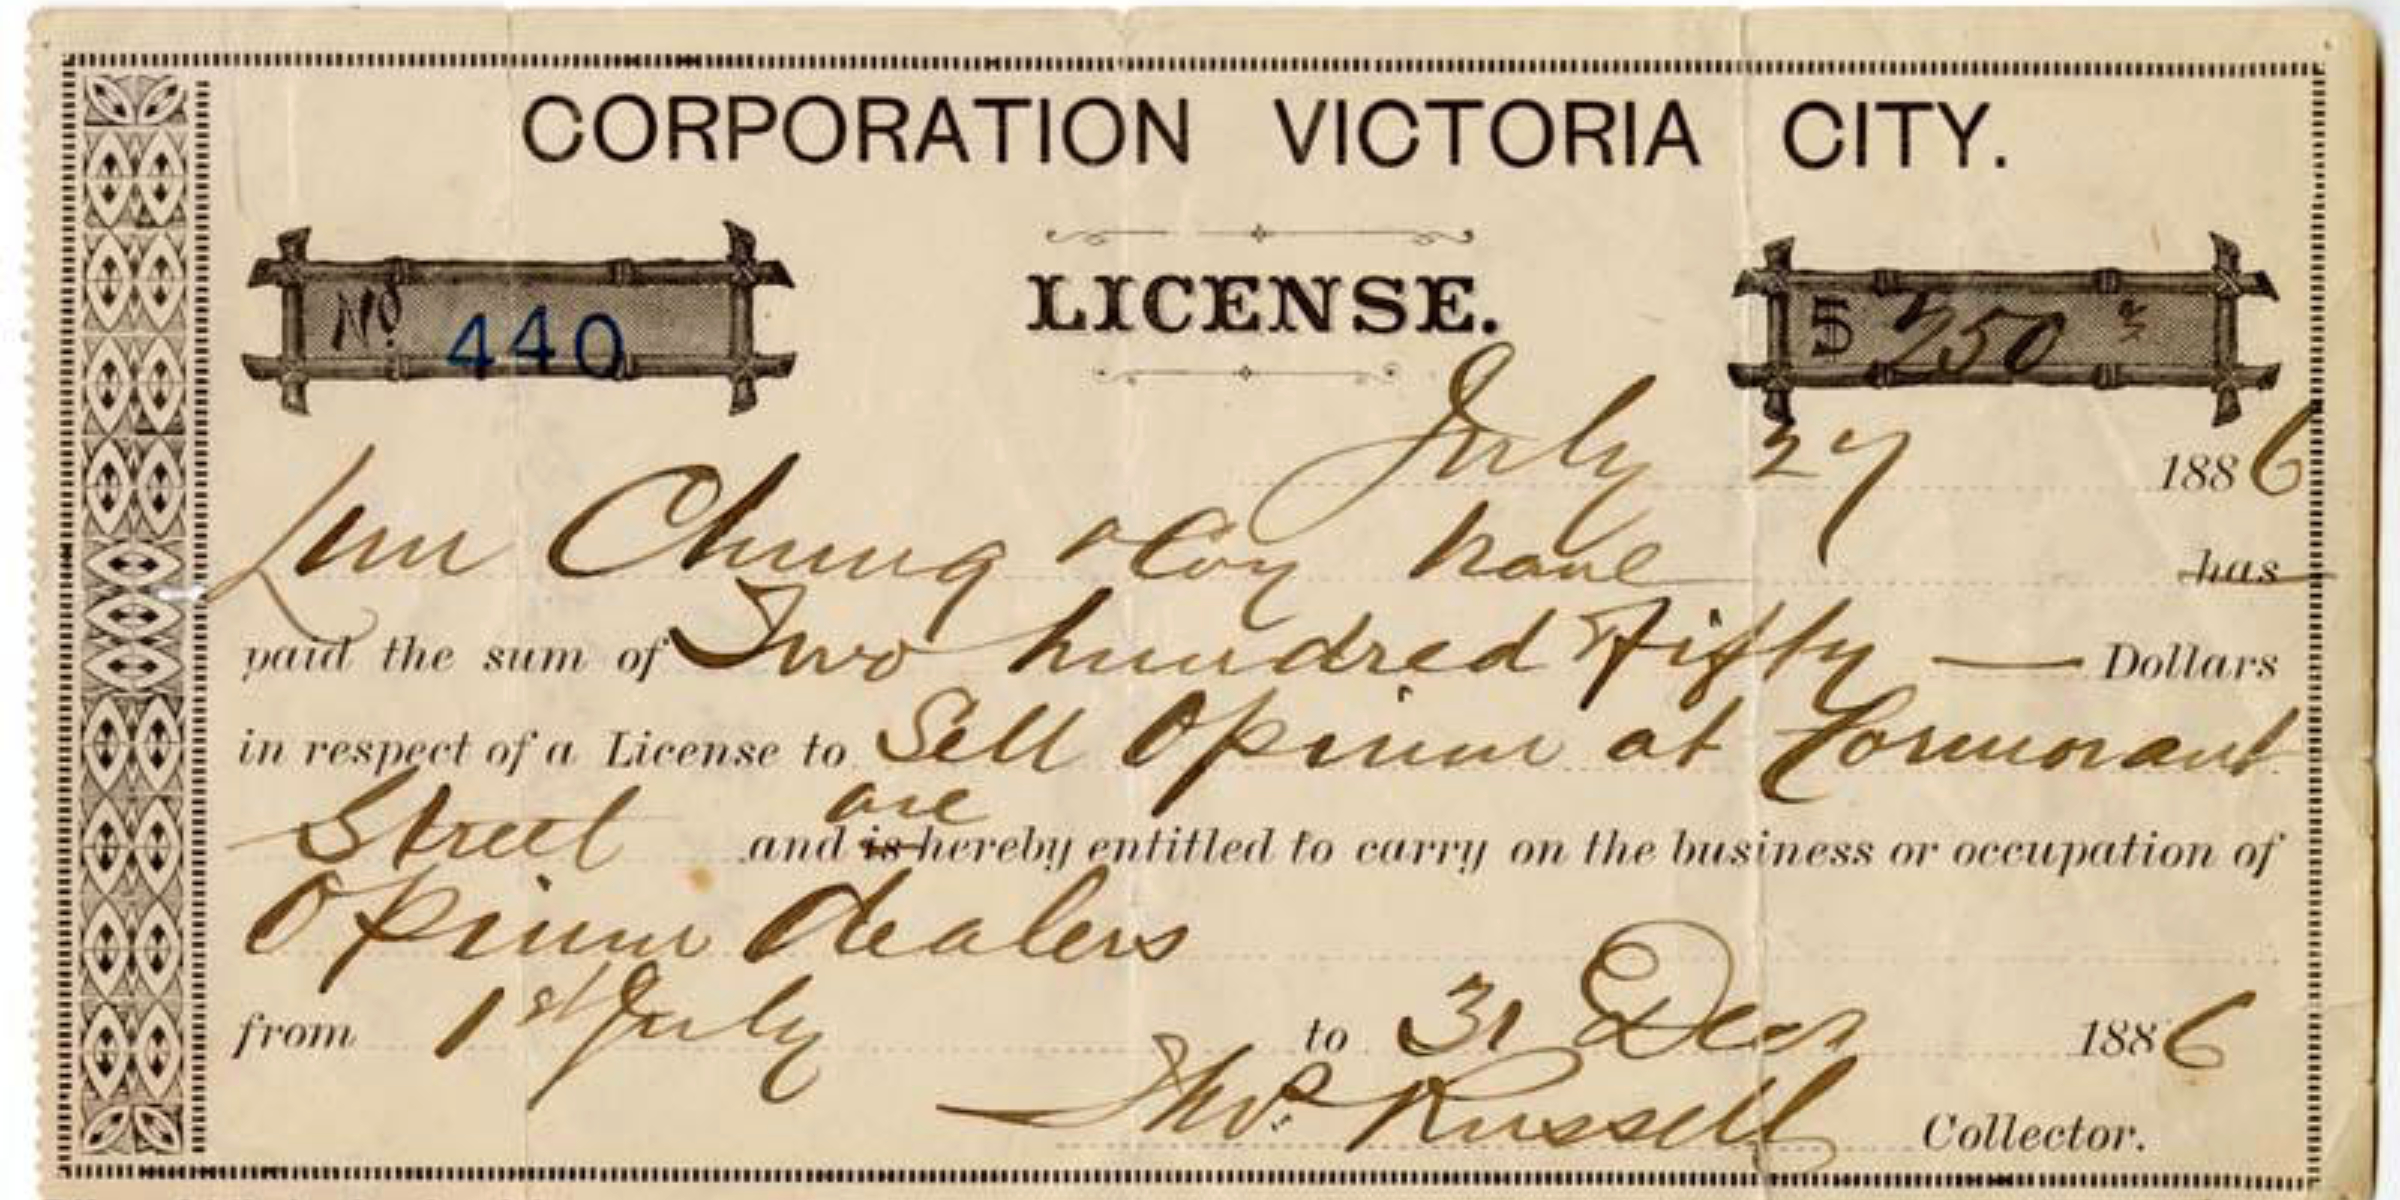 CORPORATION VICTORIA CITY.
No. 440
LICENSE.
$ 250
July 27 1886
Chung & Coy have has
paid the sum of Two hundred Fifty — Dollars
in respect of a License to Sell Opium at Cormorant
Street are and is hereby entitled to carry on the business or occupation of
Opium dealers
from 1st July to 31 Decr 1886
Thos. Russell Collector.